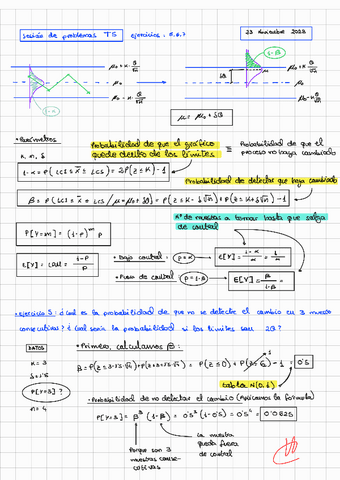 Sesión de problemas T5 ejercicios: 5,6,7
23 noviembre 2023
μ₀ + K·σ/√n
μ₀
μ₀ - K·σ/√n
1-α
1-β
δσ
μ₀ + K σ/√n
μ₀
μ₀ - K σ/√n
μ = μ₀ + δσ
• Parámetros
K, n, δ
Probabilidad de que el gráfico quede dentro de los límites ≡ Probabilidad de que el proceso no haya cambiado
1-α = P(LCI ≤ x̄ ≤ LCS) = 2P(z ≤ K) - 1
Probabilidad de detectar que haya cambiado
β = P(LCI ≤ x̄ ≤ LCS / μ = μ₀ + δσ) = P(z ≤ K - δ√n) + P(z ≤ K + δ√n) - 1
Nº de muestras a tomar hasta que salga de control
P[Y=m] = (1-p)^m p
E[Y] = = 1-p/p
• Bajo control: p = α → E[Y] = 1-α/α =
• Fuera de control: p = 1-β → E[Y] = β/1-β =
• Ejercicio 5: ¿cuál es la probabilidad de que no se detecte el cambio en 3 muestras
consecutivas? ¿Cuál sería la probabilidad si los límites son 2σ?
DATOS
K = 3
δ = 1'5
P[Y=3]?
n = 4
• Primero, calculamos β:
β = P(z ≤ 3-1'5·√4) + P(z ≤ 3+1'5·√4) - 1 = P(z ≤ 0) + P(z ≤ 6) - 1 = 0'5
tabla N(0,1)
• Probabilidad de no detectar el cambio (Aplicamos la fórmula)
P[Y=3] = β³ (1-β) = 0'5³ (1-0'5) = 0'5⁴ = 0'0625
Porque son 3 muestras consecutivas
La muestra queda fuera de control